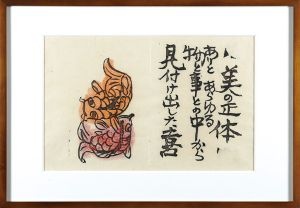 美の正体
ありとあらゆる
物と事との中から
見付け出した喜